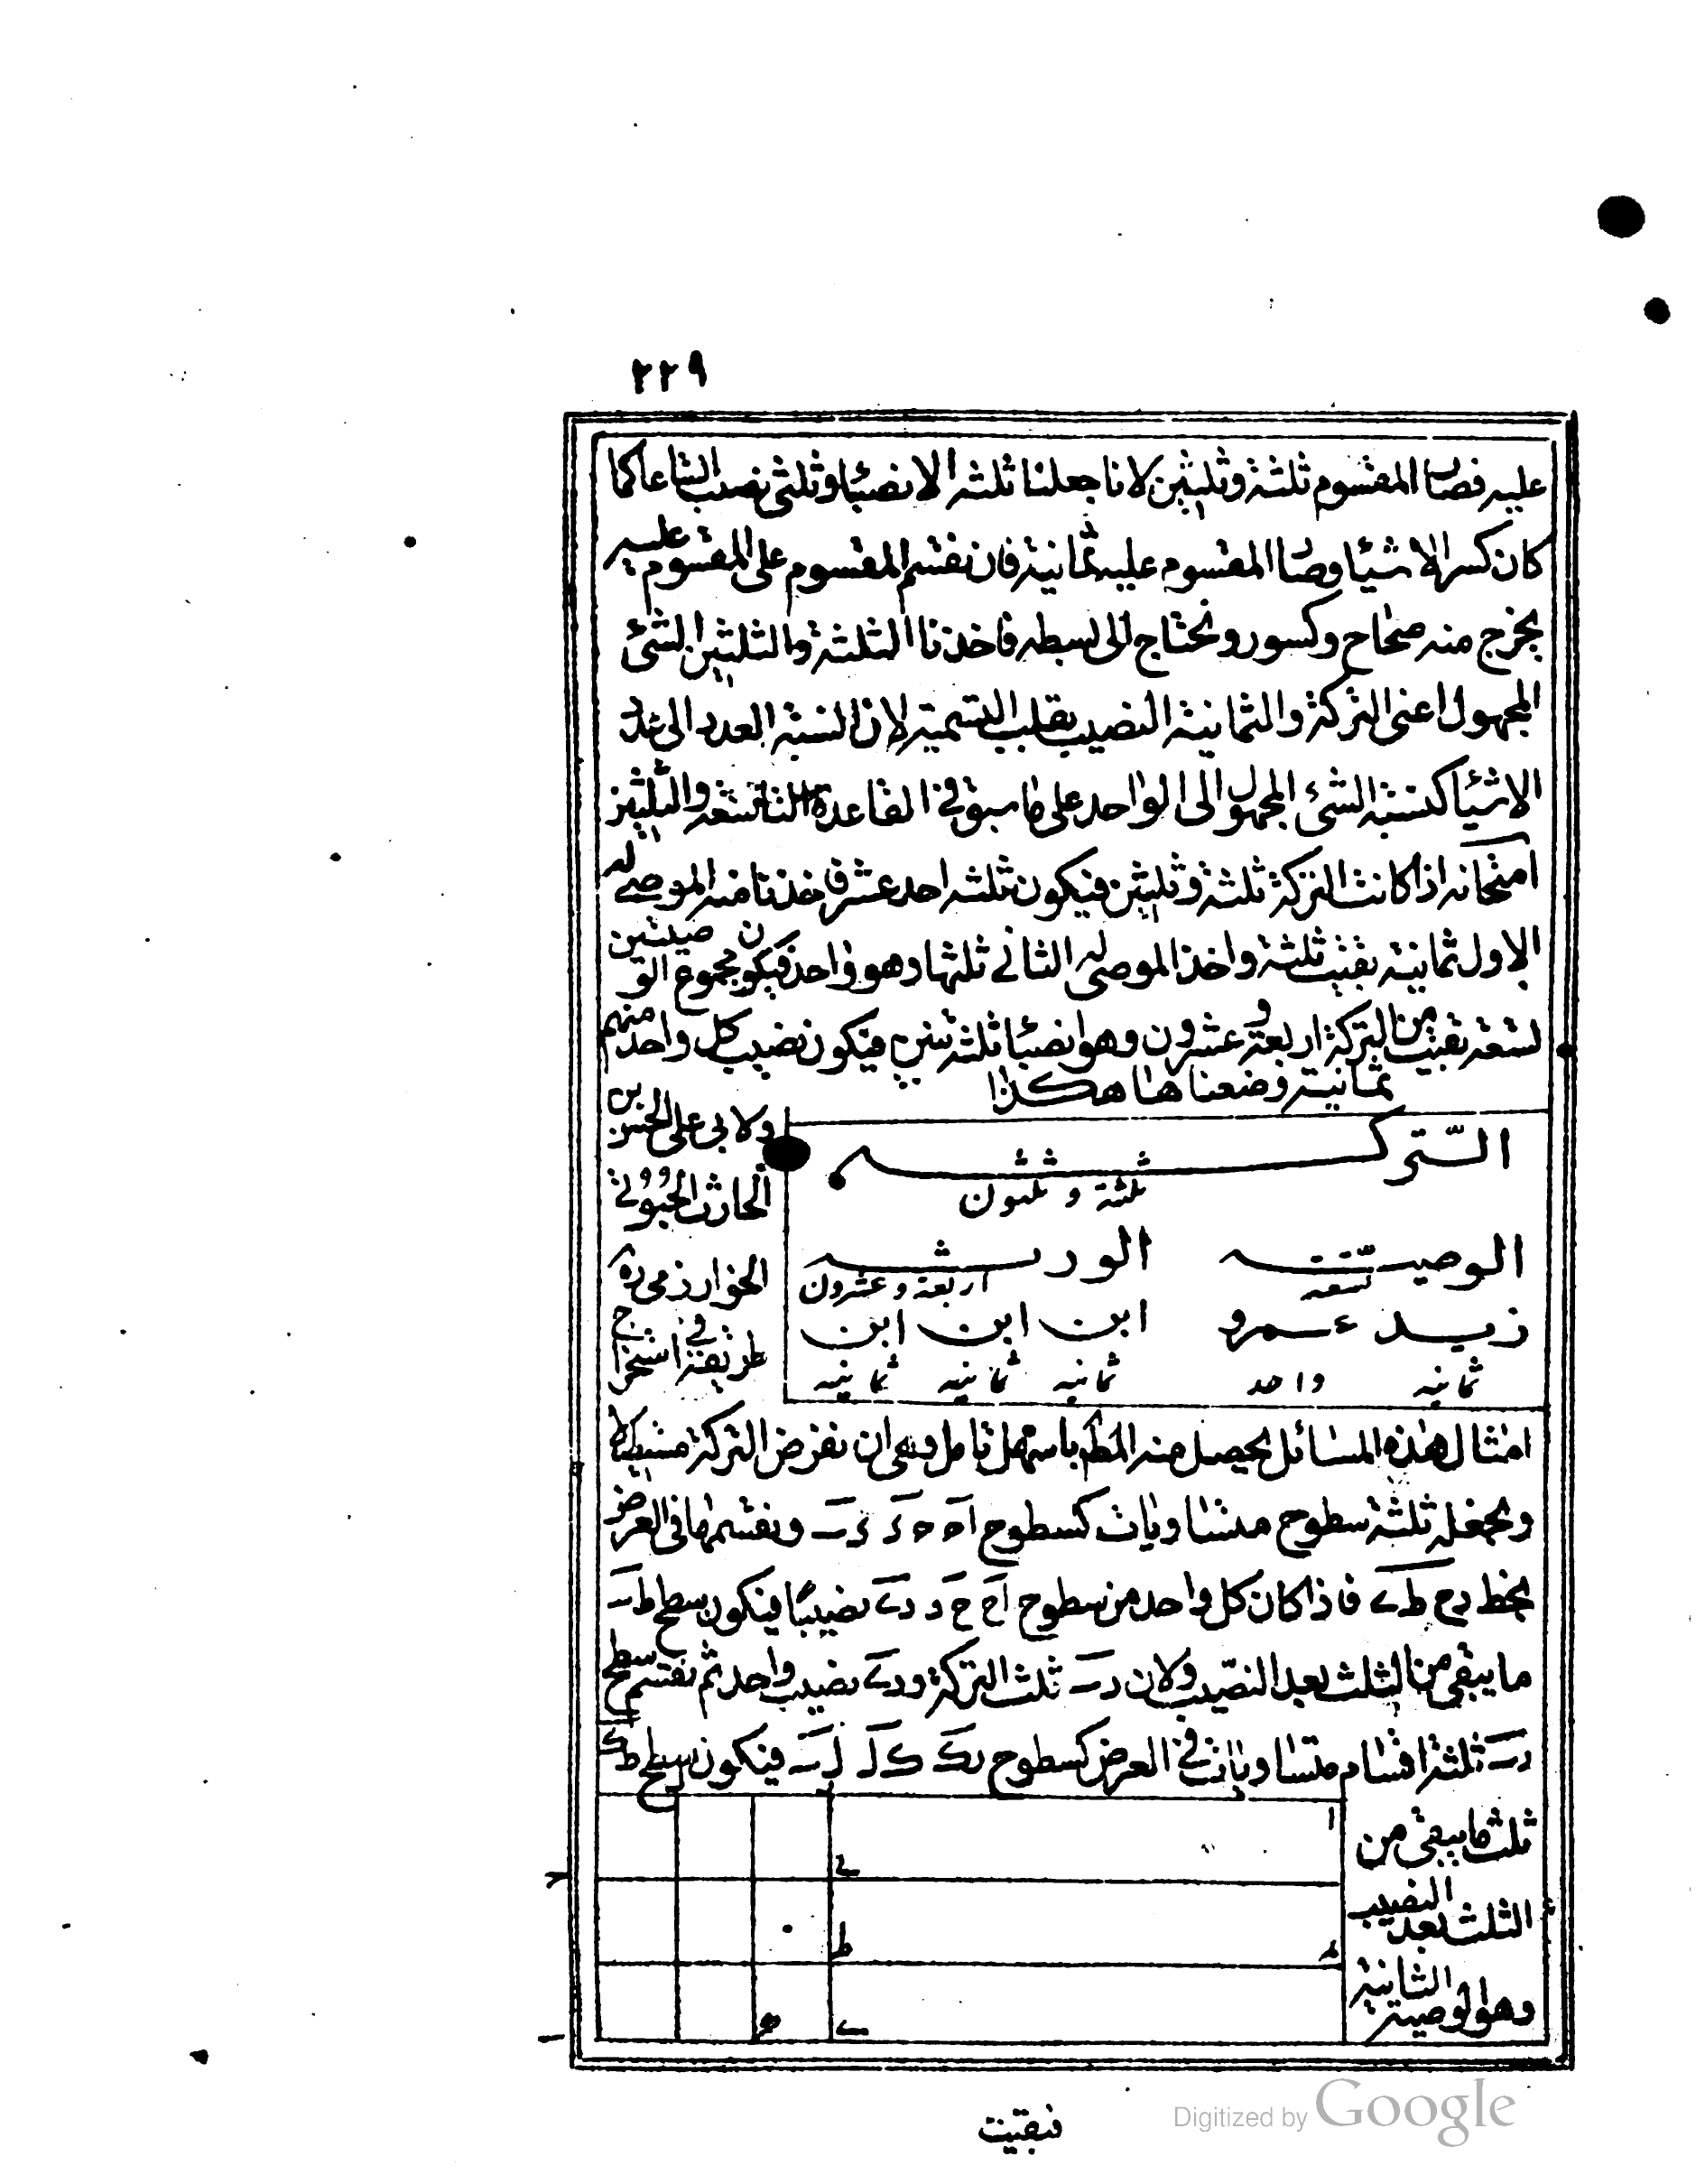 ٢٢٩
عليه فصار المقسوم ثلثة وثلثين لانا جعلنا ثلثه الانصبا وثلثى نصيب اشياعا كما
كان كسر الاشيا وصار المقسوم عليه ثمانية فان نقسم المقسوم على المقسوم عليه
يخرج منه صحاح وكسور ونحتاج الى بسطه فاخذنا الثلثة والثلثين الشئ
المجهول اعنى التركة والثمانية النصيب بقلب التسمية لان النسبة العدد الى عدد
الاشيا كنسبة الشئ المجهول الى الواحد على ما سبق فى القاعدة والثلثين
امتحانه اذا كانت التركة ثلثة وثلثين فيكون ثلثه احد عشر فاخذنا منه الموصى له
الاول ثمانية بقيت ثلثة واخذ الموصى له الثانى ثلثها وهو واحد فيكون مجموع الوصيتين
تسعة بقيت من التركة اربعة وعشرون وهو انصبا ثلثة بنين فيكون نصيب كل واحد منهم
ثمانية وضعناها هكذا
التركـــه
ثلثة و ثلثون
الوصيـــه الورثـــه
تسعه اربعة و عشرون
زيـد عـمرو ابن ابن ابن
ثمانيه واحد ثمانيه ثمانيه ثمانيه
ولابى على الحسن بن
الحارث الحبوبى
الخوارزمى ره
طريقة فى استخراج
امثال هذه المسائل يحصل منه المط باسهل تامل وهى ان نفرض التركة مستطيلا
ونجعله ثلثة سطوح متساويات كسطوح اه ه ر رب ونقسمها فى العرض
بخط رح طى فاذا كان كل واحد من سطوح اح ح د دى نصيبا فيكون سطح طب
ما يبقى من الثلث بعد النصيب ولان رب ثلث التركة ودى نصيب واحد ثم نقسم سطح
رب ثلثة اقسام متساويات فى العرض كسطوح رك ك ل لب فيكون سطح طك
ثلث ما يبقى من
الثلث بعد النصيب
وهو الوصية الثانية
فبقيت
Digitized by Google